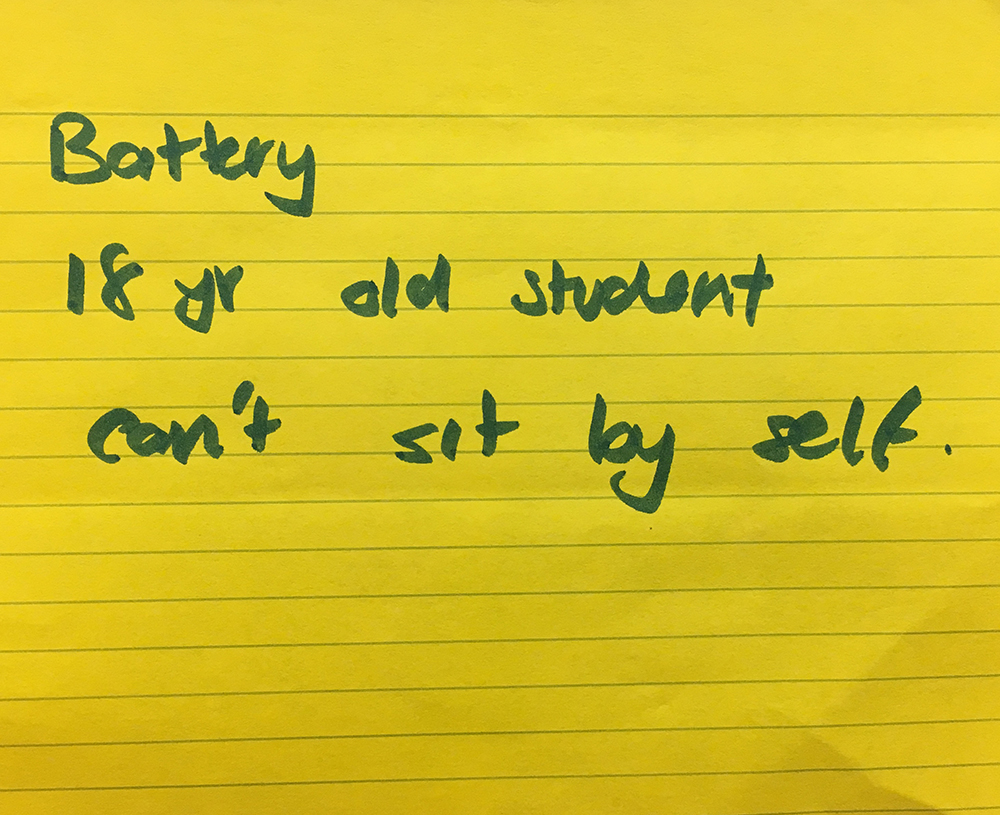 Battery
18 yr old student
can't sit by self.